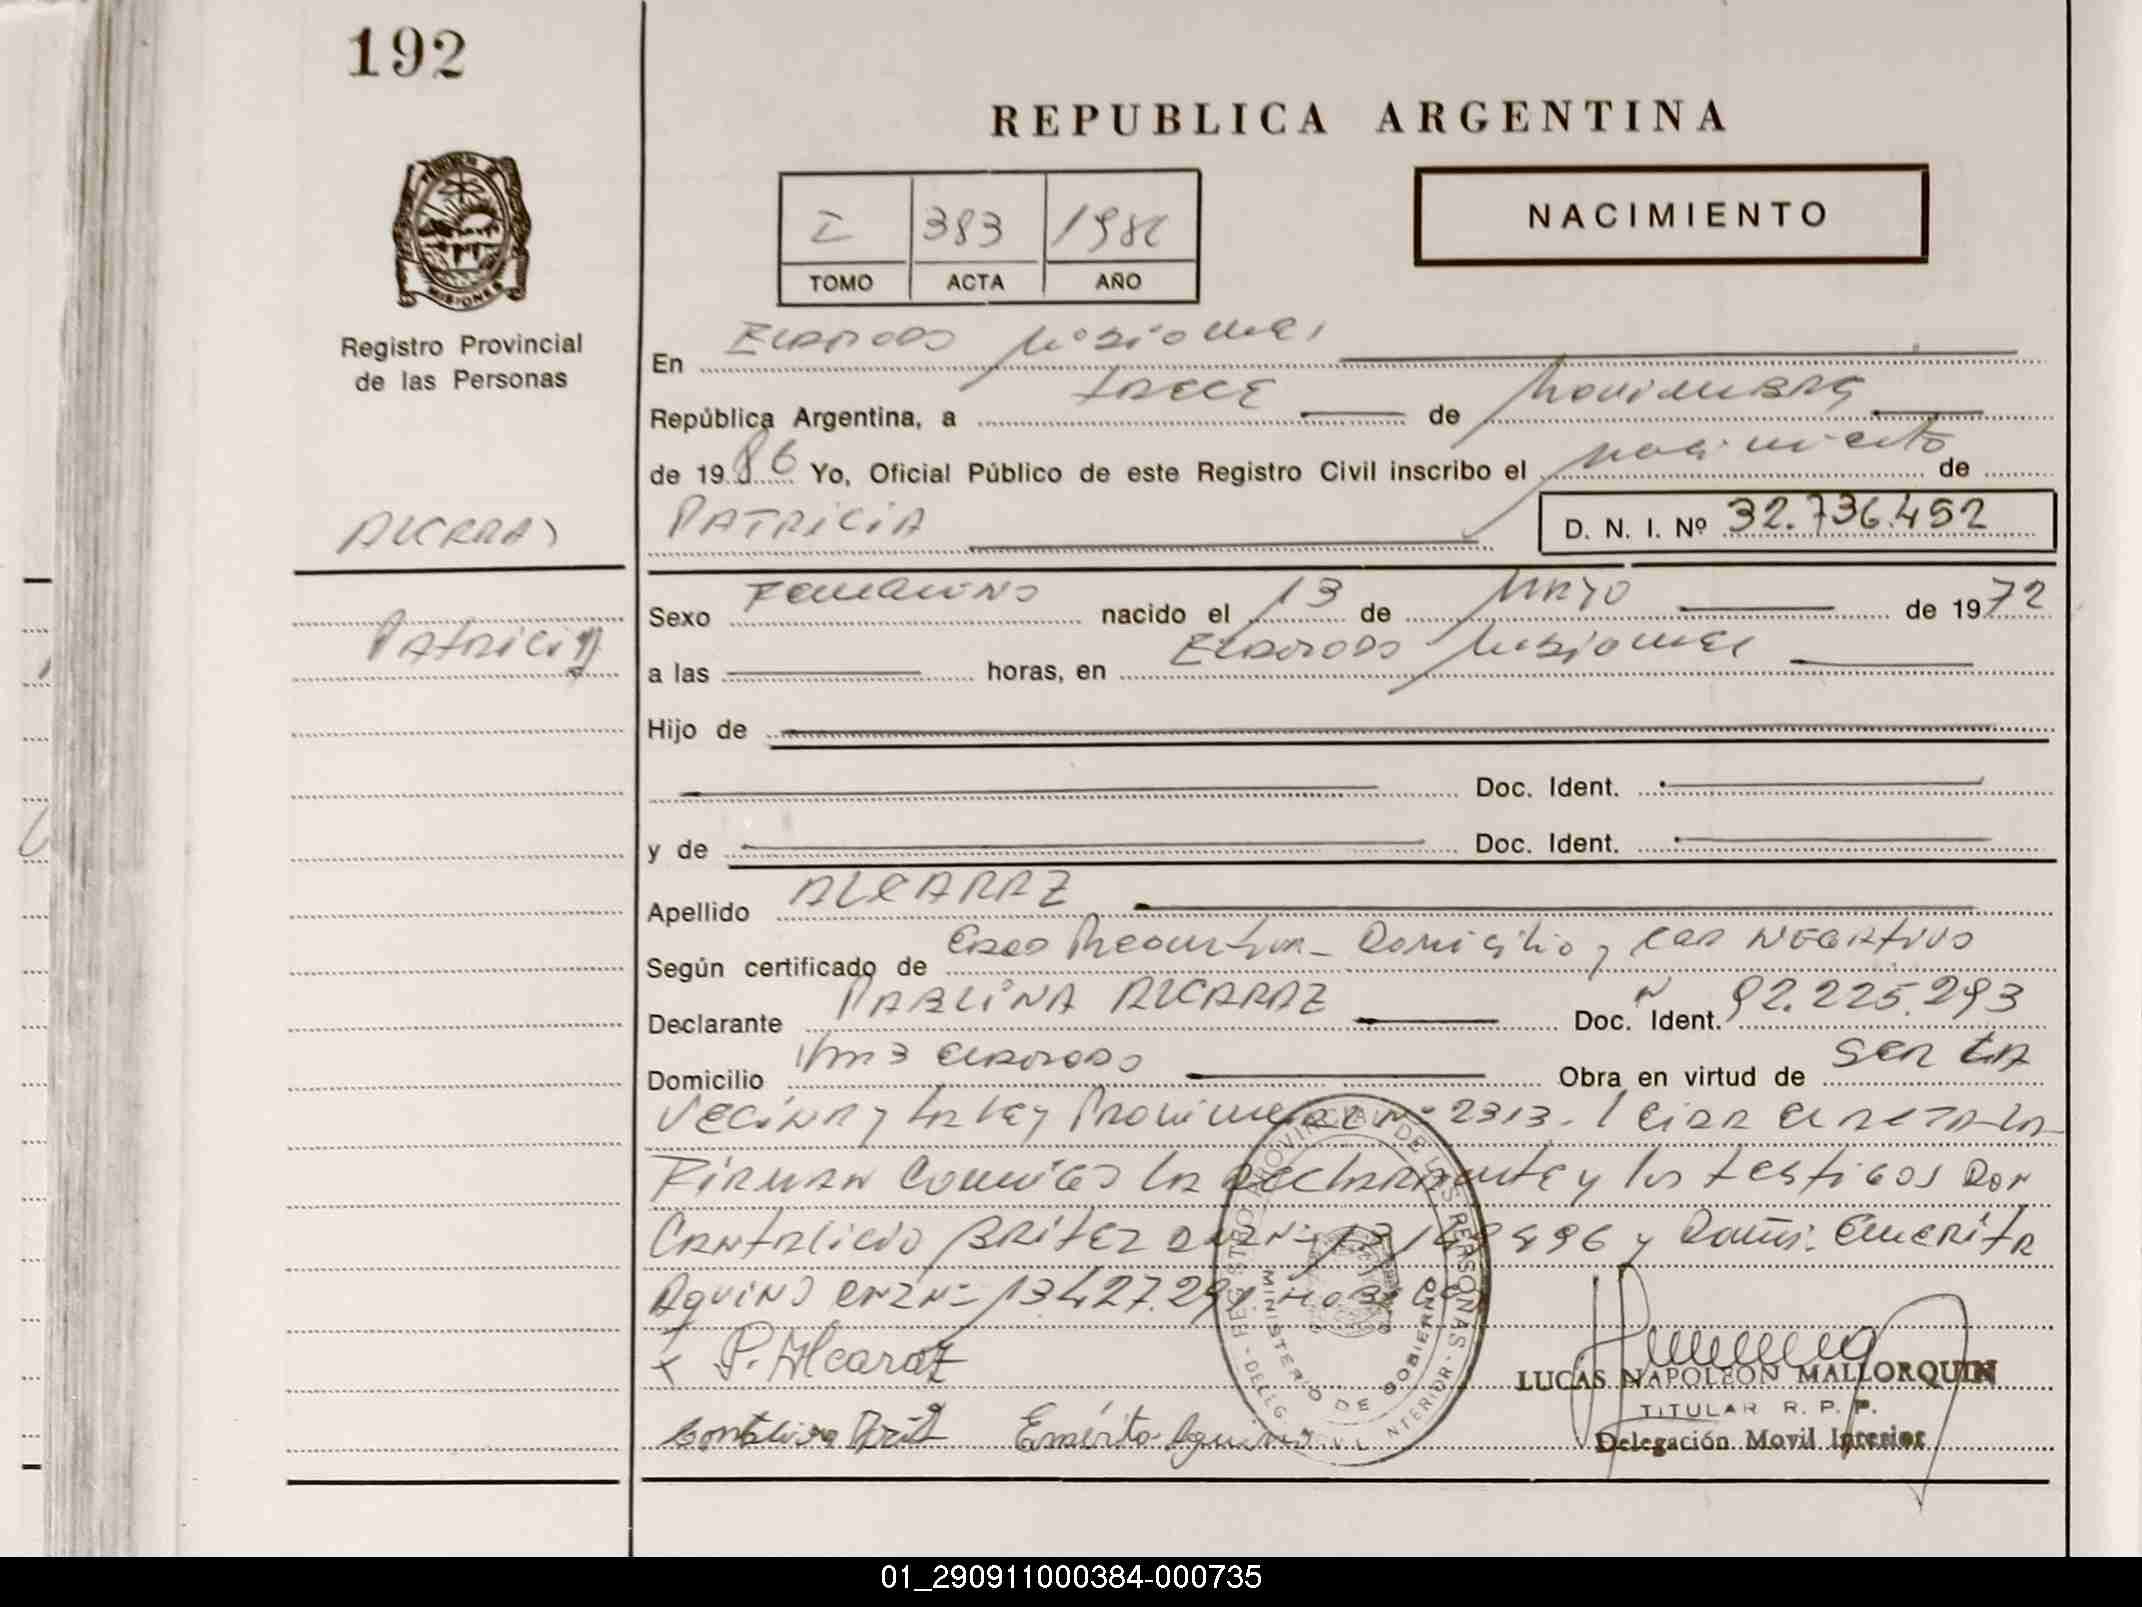 192
REPUBLICA ARGENTINA
I 383 1986
TOMO ACTA AÑO
NACIMIENTO
MISIONES
Registro Provincial
de las Personas
En Eldorado Misiones,
República Argentina, a trece de Noviembre
de 1986 Yo, Oficial Público de este Registro Civil inscribo el nacimiento de
PATRICIA
D. N. I. Nº 32.736.452
ALCARAZ
Patricia
Sexo Femenino nacido el 13 de Mayo de 1972
a las horas, en Eldorado Misiones
Hijo de
Doc. Ident.
y de Doc. Ident.
Apellido ALCARAZ
Según certificado de Domicilio y NEGATIVO
Declarante PABLINA ALCARAZ Doc. Ident. Nº 92.225.293
Domicilio Km 3 Eldorado Obra en virtud de SER LA
VECINA y la Ley Provincial Nº 2313. Leida el acta la
Firman conmigo la declarante y los testigos Don
Cantalicio BRITEZ y Doña: Emerita
Aquino
x P. Alcaraz
Cantalicio Brit Emérita Aquino
REGISTRO PROVINCIAL DE LAS PERSONAS
MINISTERIO DE GOBIERNO
DELEG. MOVIL INTERIOR
LUCAS NAPOLEON MALLORQUIN
TITULAR R. P. P.
Delegación Movil Interior
01_290911000384-000735